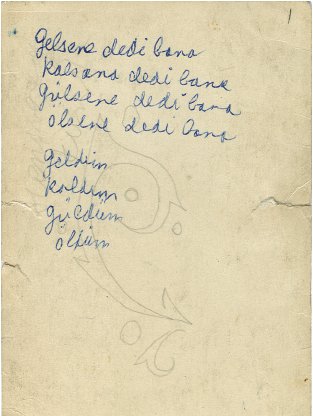 1
Gelsene dedi bana
Kalsana dedi bana
Gülsene dedi bana
ölsene dedi bana
geldim
kaldım
güldüm
öldüm